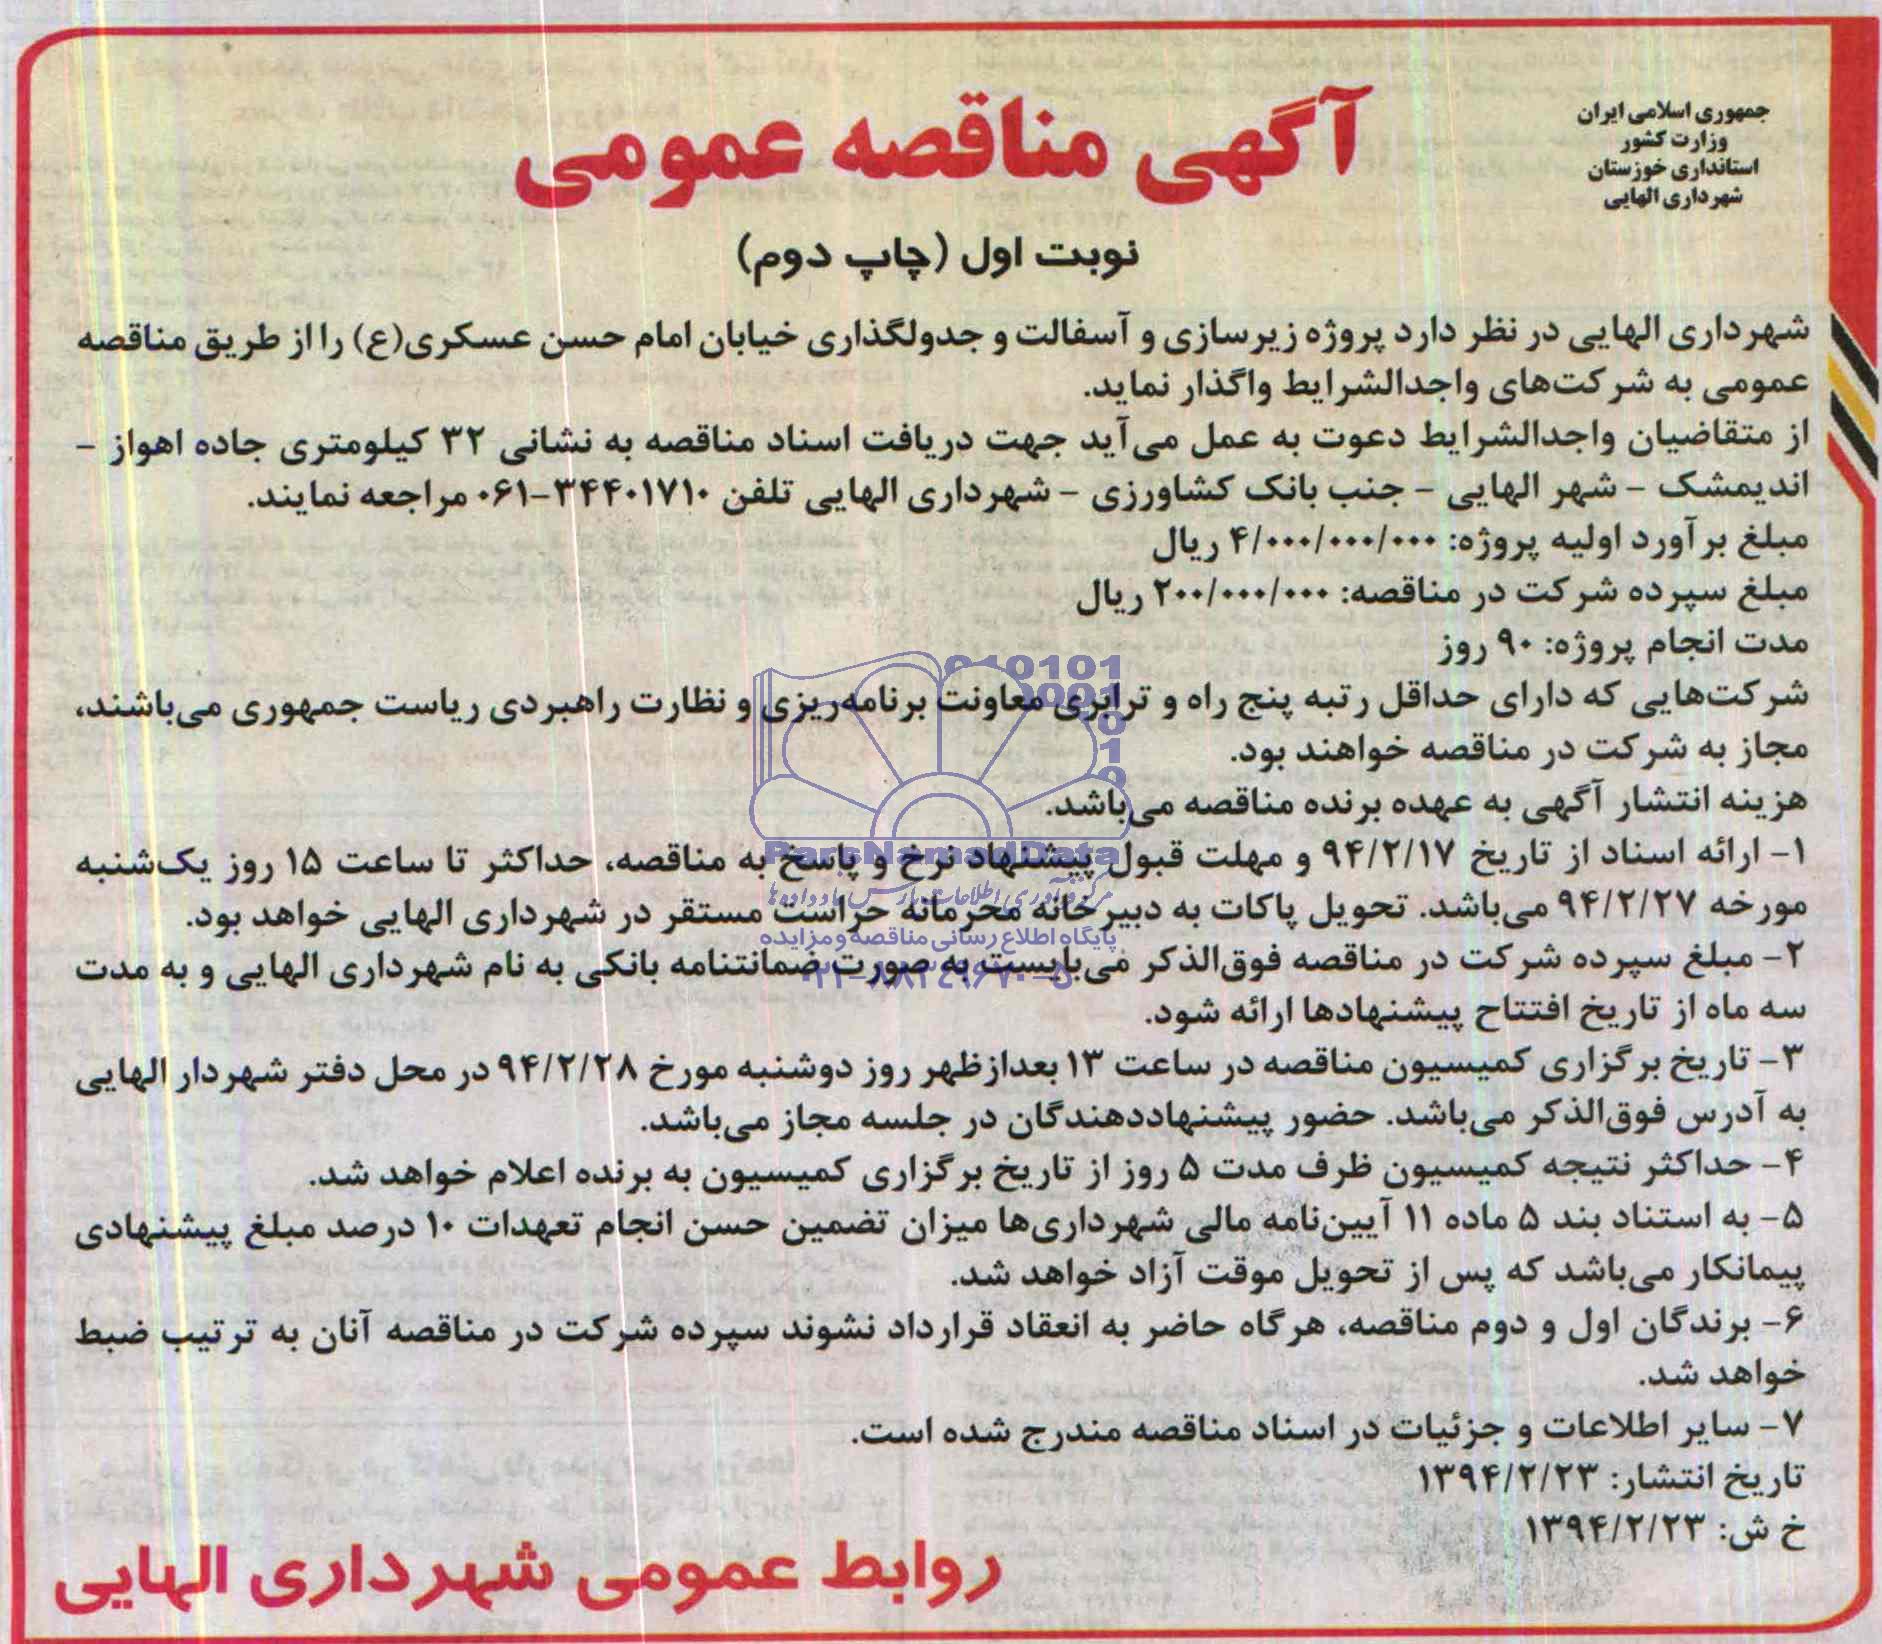 جمهوری اسلامی ایران
وزارت کشور
استانداری خوزستان
شهرداری الهایی
آگهی مناقصه عمومی
نوبت اول (چاپ دوم)
شهرداری الهایی در نظر دارد پروژه زیرسازی و آسفالت و جدولگذاری خیابان امام حسن عسکری(ع) را از طریق مناقصه
عمومی به شرکت‌های واجدالشرایط واگذار نماید.
از متقاضیان واجدالشرایط دعوت به عمل می‌آید جهت دریافت اسناد مناقصه به نشانی ۳۲ کیلومتری جاده اهواز –
اندیمشک – شهر الهایی – جنب بانک کشاورزی – شهرداری الهایی تلفن ۳۴۴۰۱۷۱۰-۰۶۱ مراجعه نمایند.
مبلغ برآورد اولیه پروژه: ۴/۰۰۰/۰۰۰/۰۰۰ ریال
مبلغ سپرده شرکت در مناقصه: ۲۰۰/۰۰۰/۰۰۰ ریال
مدت انجام پروژه: ۹۰ روز
شرکت‌هایی که دارای حداقل رتبه پنج راه و ترابری معاونت برنامه‌ریزی و نظارت راهبردی ریاست جمهوری می‌باشند،
مجاز به شرکت در مناقصه خواهند بود.
هزینه انتشار آگهی به عهده برنده مناقصه می‌باشد.
۱- ارائه اسناد از تاریخ ۹۴/۲/۱۷ و مهلت قبول پیشنهاد نرخ و پاسخ به مناقصه، حداکثر تا ساعت ۱۵ روز یک‌شنبه
مورخه ۹۴/۲/۲۷ می‌باشد. تحویل پاکات به دبیرخانه محرمانه حراست مستقر در شهرداری الهایی خواهد بود.
۲- مبلغ سپرده شرکت در مناقصه فوق‌الذکر می‌بایست به صورت ضمانتنامه بانکی به نام شهرداری الهایی و به مدت
سه ماه از تاریخ افتتاح پیشنهادها ارائه شود.
۳- تاریخ برگزاری کمیسیون مناقصه در ساعت ۱۳ بعدازظهر روز دوشنبه مورخ ۹۴/۲/۲۸ در محل دفتر شهردار الهایی
به آدرس فوق‌الذکر می‌باشد. حضور پیشنهاددهندگان در جلسه مجاز می‌باشد.
۴- حداکثر نتیجه کمیسیون ظرف مدت ۵ روز از تاریخ برگزاری کمیسیون به برنده اعلام خواهد شد.
۵- به استناد بند ۵ ماده ۱۱ آیین‌نامه مالی شهرداری‌ها میزان تضمین حسن انجام تعهدات ۱۰ درصد مبلغ پیشنهادی
پیمانکار می‌باشد که پس از تحویل موقت آزاد خواهد شد.
۶- برندگان اول و دوم مناقصه، هرگاه حاضر به انعقاد قرارداد نشوند سپرده شرکت در مناقصه آنان به ترتیب ضبط
خواهد شد.
۷- سایر اطلاعات و جزئیات در اسناد مناقصه مندرج شده است.
تاریخ انتشار: ۱۳۹۴/۲/۲۳
خ ش: ۱۳۹۴/۲/۲۳
روابط عمومی شهرداری الهایی
ParsNamadData
مرکز فرآوری اطلاعات پارس نماد داده‌ها
پایگاه اطلاع رسانی مناقصه و مزایده
۰۲۱-۸۸۳۴۹۶۷۰-۵